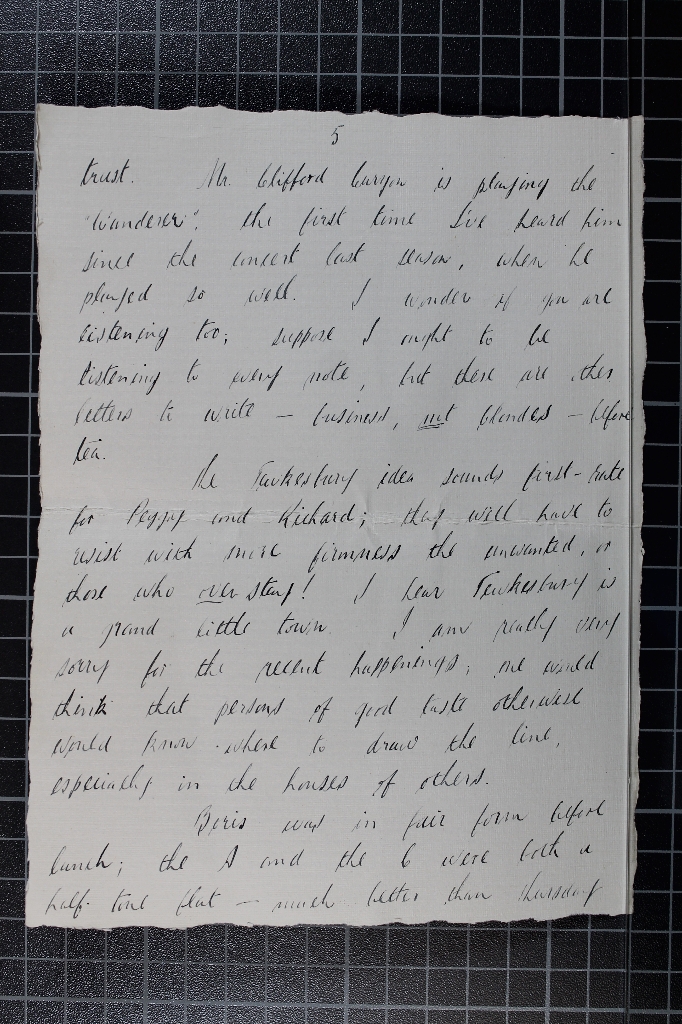 5
trust. Mr. Clifford Curzon is playing the
"Wanderer", the first time I've heard him
since the concert last season, when he
played so well. I wonder if you are
listening too; suppose I ought to be
listening to every note, but there are other
letters to write — business, not blondes — before
tea.
The Tewkesbury idea sounds first-rate
for Peggy and Richard; they will have to
resist with more firmness the unwanted, or
those who overstay! I hear Tewkesbury is
a grand little town. I am really very
sorry for the recent happenings; one would
think that persons of good taste otherwise
would know where to draw the line,
especially in the houses of others.
Boris was in fair form before
lunch; the A and the C were both a
half-tone flat — much better than Thursday